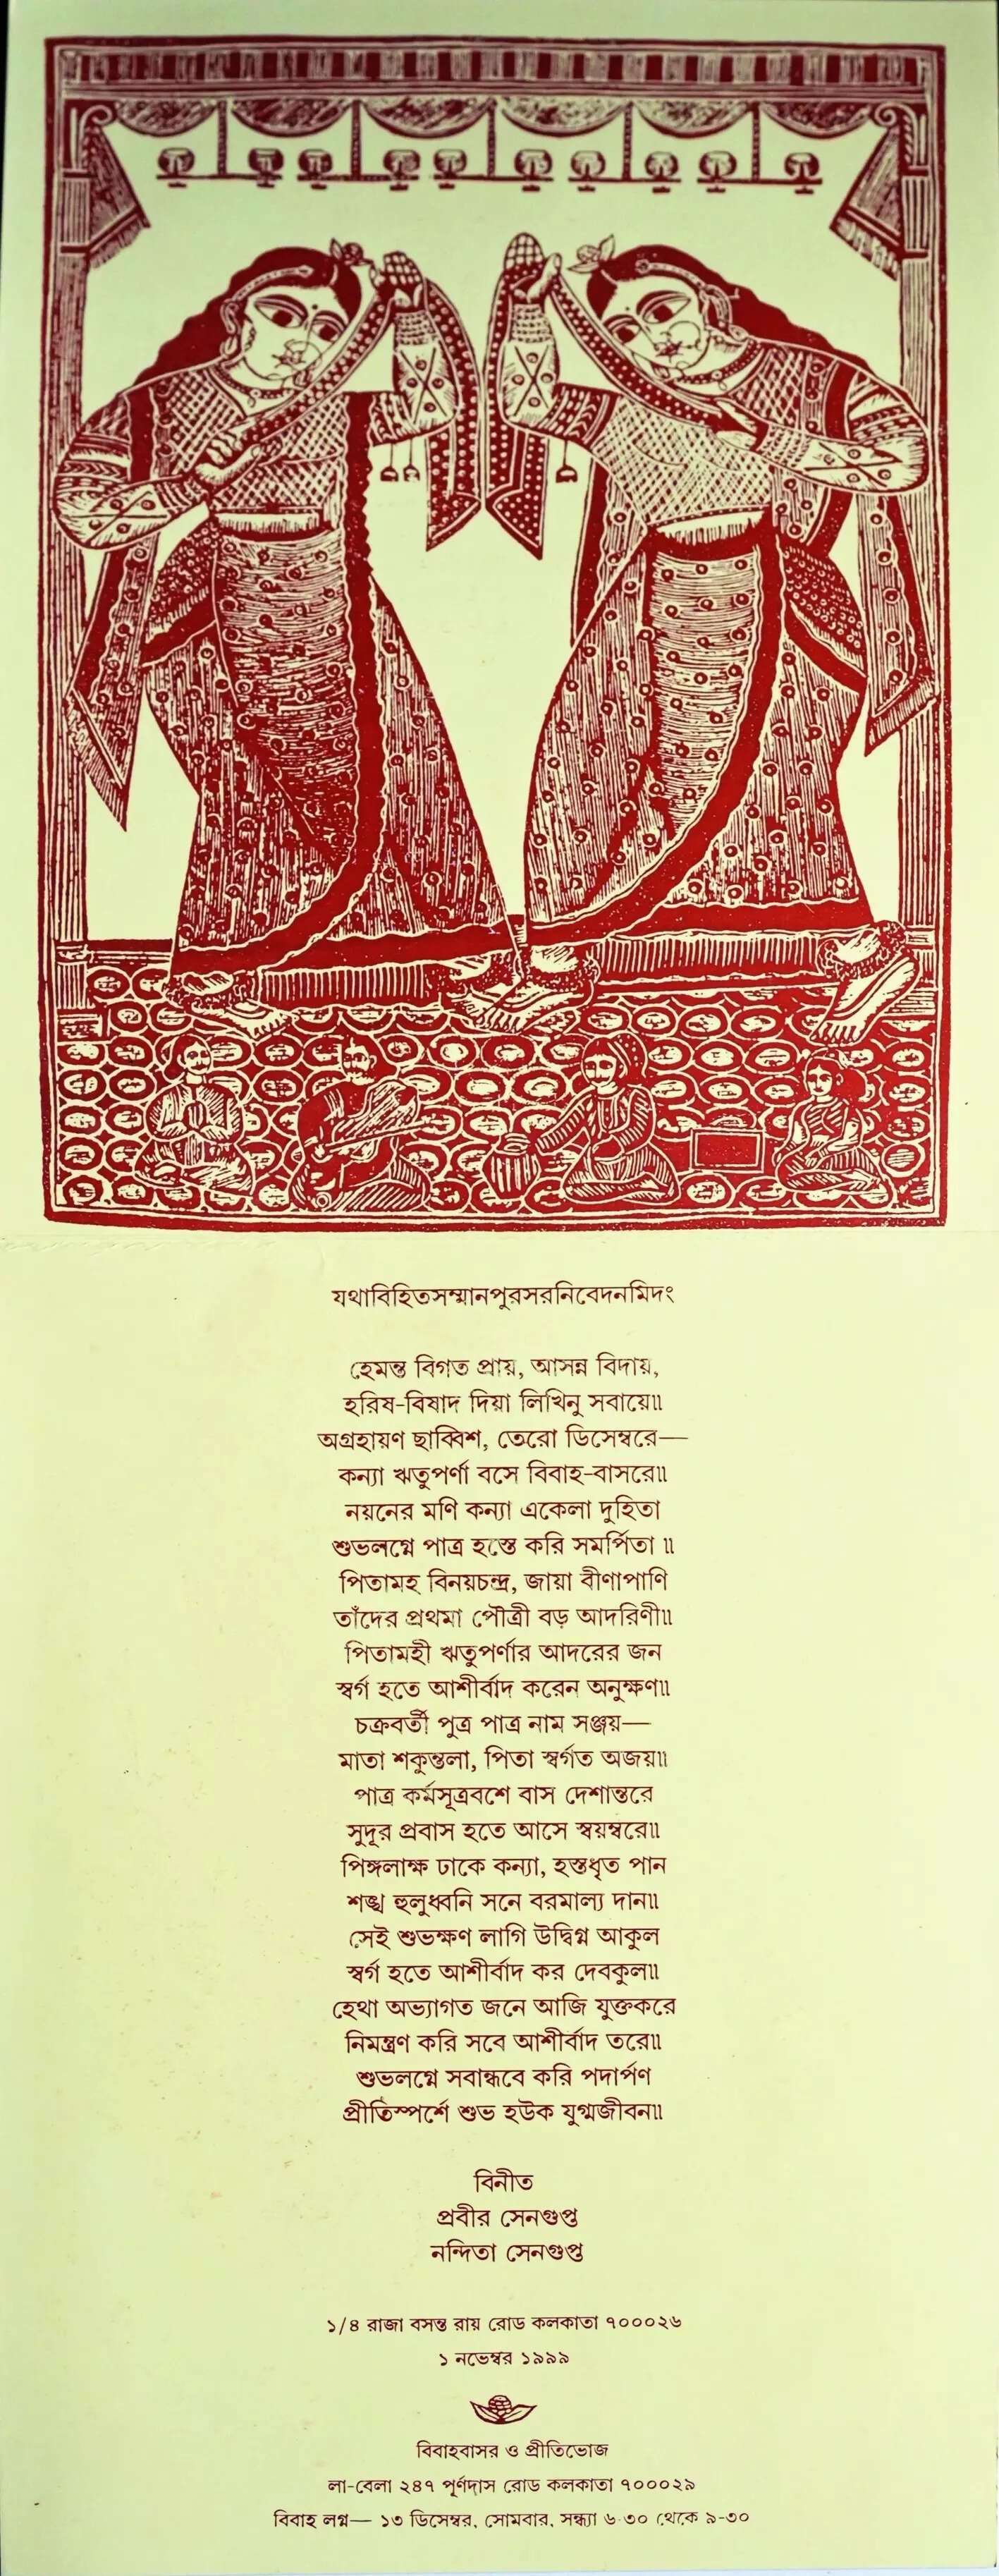 যথাবিহিতসম্মানপুরসরনিবেদনমিদং
হেমন্ত বিগত প্রায়, আসন্ন বিদায়,
হরিষ-বিষাদ দিয়া লিখিনু সবায়ে॥
অগ্রহায়ণ ছাব্বিশ, তেরো ডিসেম্বরে—
কন্যা ঋতুপর্ণা বসে বিবাহ-বাসরে॥
নয়নের মণি কন্যা একেলা দুহিতা
শুভলগ্নে পাত্র হস্তে করি সমর্পিতা ॥
পিতামহ বিনয়চন্দ্র, জায়া বীণাপাণি
তাঁদের প্রথমা পৌত্রী বড় আদরিণী॥
পিতামহী ঋতুপর্ণার আদরের জন
স্বর্গ হতে আশীর্বাদ করেন অনুক্ষণ॥
চক্রবর্তী পুত্র পাত্র নাম সঞ্জয়—
মাতা শকুন্তলা, পিতা স্বর্গত অজয়॥
পাত্র কর্মসূত্রবশে বাস দেশান্তরে
সুদূর প্রবাস হতে আসে স্বয়ম্বরে॥
পিঙ্গলাক্ষ ঢাকে কন্যা, হস্তধৃত পান
শঙ্খ হুলুধ্বনি সনে বরমাল্য দান॥
সেই শুভক্ষণ লাগি উদ্বিগ্ন আকুল
স্বর্গ হতে আশীর্বাদ কর দেবকুল॥
হেথা অভ্যাগত জনে আজি যুক্তকরে
নিমন্ত্রণ করি সবে আশীর্বাদ তরে॥
শুভলগ্নে সবান্ধবে করি পদার্পণ
প্রীতিস্পর্শে শুভ হউক যুগ্মজীবন॥
বিনীত
প্রবীর সেনগুপ্ত
নন্দিতা সেনগুপ্ত
১/৪ রাজা বসন্ত রায় রোড কলকাতা ৭০০০২৬
১ নভেম্বর ১৯৯৯
বিবাহবাসর ও প্রীতিভোজ
লা-বেলা ২৪৭ পূর্ণদাস রোড কলকাতা ৭০০০২৯
বিবাহ লগ্ন— ১৩ ডিসেম্বর, সোমবার, সন্ধ্যা ৬-৩০ থেকে ৯-৩০